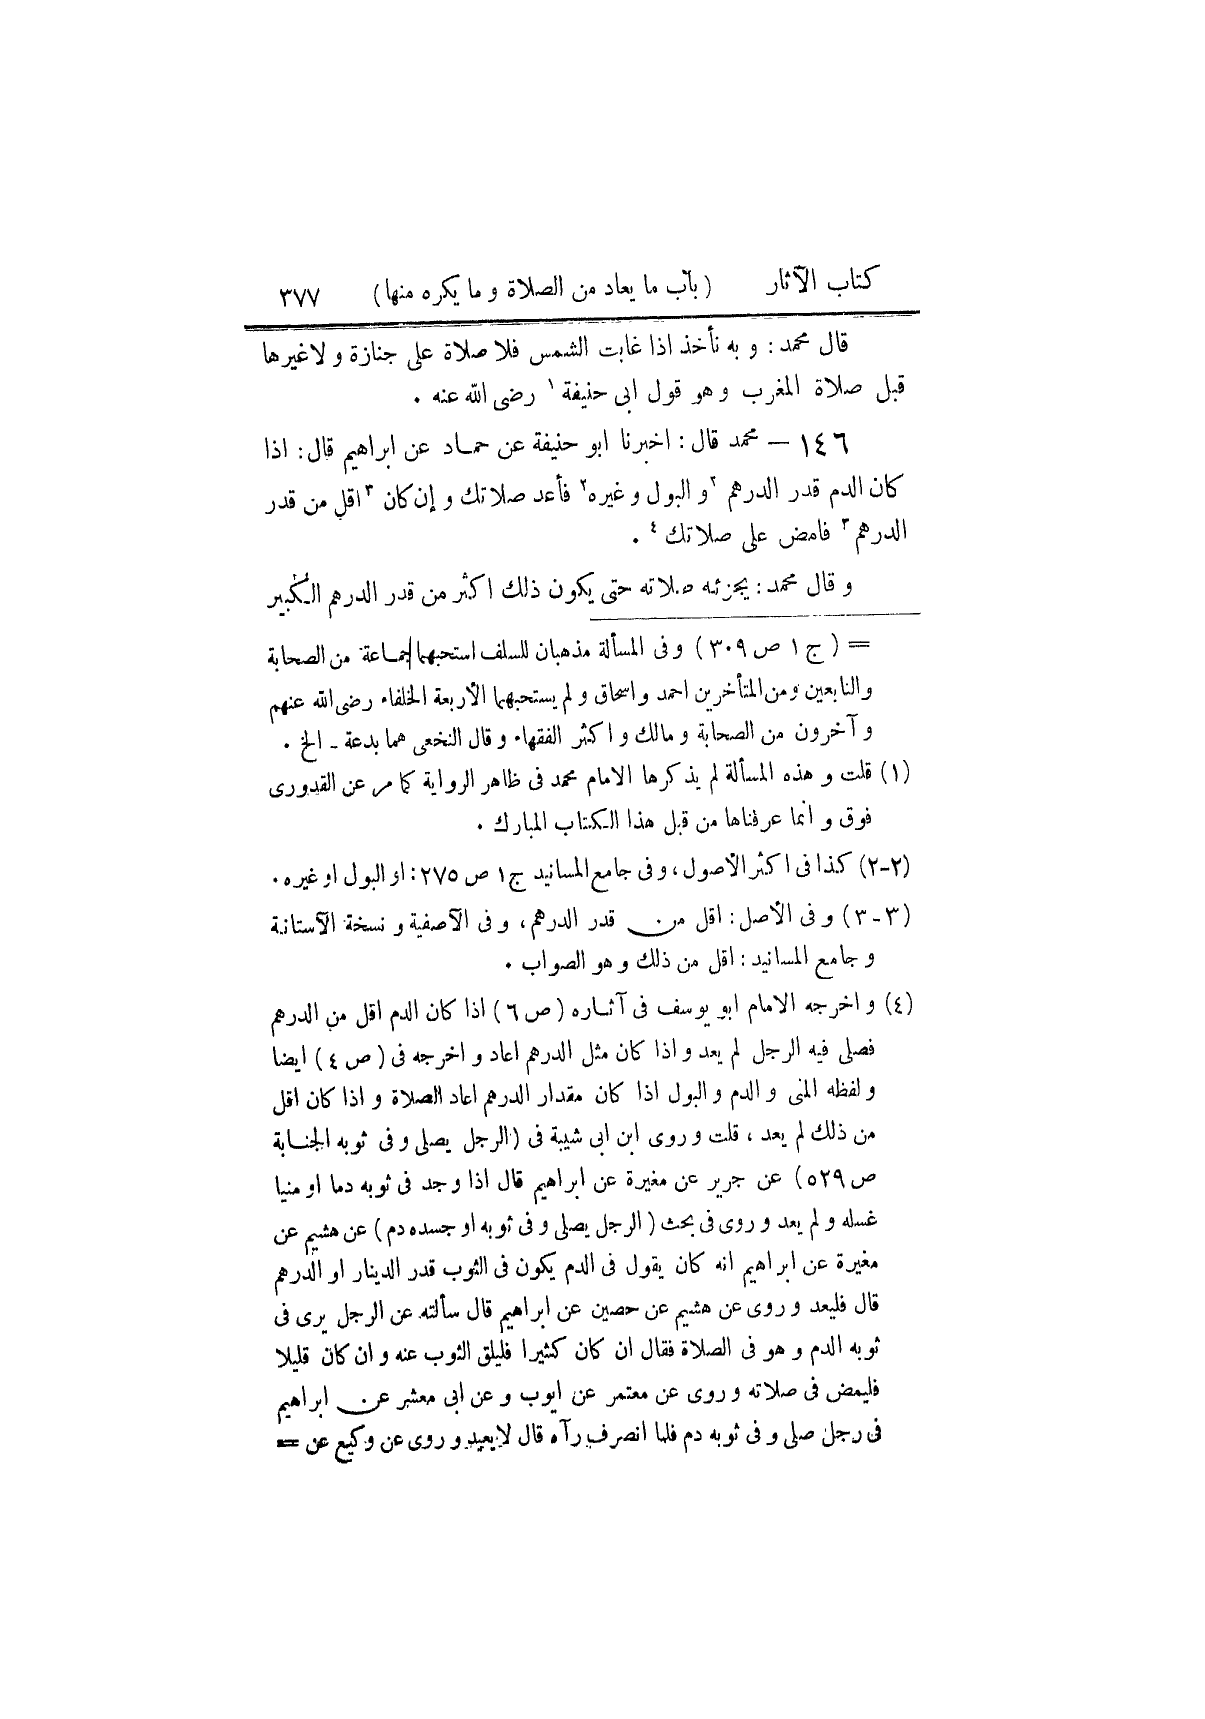 كتاب الآثار ( باب ما يعاد من الصلاة و ما يكره منها ) ٣٧٧
قال محمد : و به نأخذ اذا غابت الشمس فلا صلاة على جنازة و لا غيرها
قبل صلاة المغرب و هو قول ابى حنيفة ١ رضى الله عنه .
١٤٦ – محمد قال : اخبرنا ابو حنيفة عن حماد عن ابراهيم قال : اذا
كان الدم قدر الدرهم ٢ و البول و غيره ٢ فأعد صلاتك و إن كان ٣ اقل من قدر
الدرهم ٣ فامض على صلاتك ٤ .
و قال محمد : يجزئه صلاته حتى يكون ذلك اكثر من قدر الدرهم الكبير
= ( ج ١ ص ٣٠٩ ) و فى المسألة مذهبان للسلف استحبهما جماعة من الصحابة
و التابعين و من المتأخرين احمد و اسحاق و لم يستحبهما الأربعة الخلفاء رضى الله عنهم
و آخرون من الصحابة و مالك و اكثر الفقهاء و قال النخعى هما بدعة ـ الخ .
(١) قلت و هذه المسألة لم يذكرها الامام محمد فى ظاهر الرواية كما مر عن القدورى
فوق و انما عرفناها من قبل هذا الكتاب المبارك .
(٢-٢) كذا فى اكثر الأصول ، و فى جامع المسانيد ج ١ ص ٢٧٥ : او البول او غيره .
(٣-٣) و فى الأصل : اقل من قدر الدرهم ، و فى الآصفية و نسخة الآستانة
و جامع المسانيد : اقل من ذلك و هو الصواب .
(٤) و اخرجه الامام ابو يوسف فى آثاره ( ص ٦ ) اذا كان الدم اقل من الدرهم
فصلى فيه الرجل لم يعد و اذا كان مثل الدرهم اعاد و اخرجه فى ( ص ٤ ) ايضا
و لفظه المنى و الدم و البول اذا كان مقدار الدرهم اعاد الصلاة و اذا كان اقل
من ذلك لم يعد ، قلت و روى ابن ابى شيبة فى ( الرجل يصلى و فى ثوبه الجنابة
ص ٥٢٩ ) عن جرير عن مغيرة عن ابراهيم قال اذا وجد فى ثوبه دما او منيا
غسله و لم يعد و روى فى بحث ( الرجل يصلى و فى ثوبه او جسده دم ) عن هشيم عن
مغيرة عن ابراهيم انه كان يقول فى الدم يكون فى الثوب قدر الدينار او الدرهم
قال فليعد و روى عن هشيم عن حصين عن ابراهيم قال سألته عن الرجل يرى فى
ثوبه الدم و هو فى الصلاة فقال ان كان كثيرا فليلق الثوب عنه و ان كان قليلا
فليمض فى صلاته و روى عن معتمر عن ايوب و عن ابى معشر عن ابراهيم
فى رجل صلى و فى ثوبه دم فلما انصرف رآه قال لا يعيد و روى عن وكيع عن =